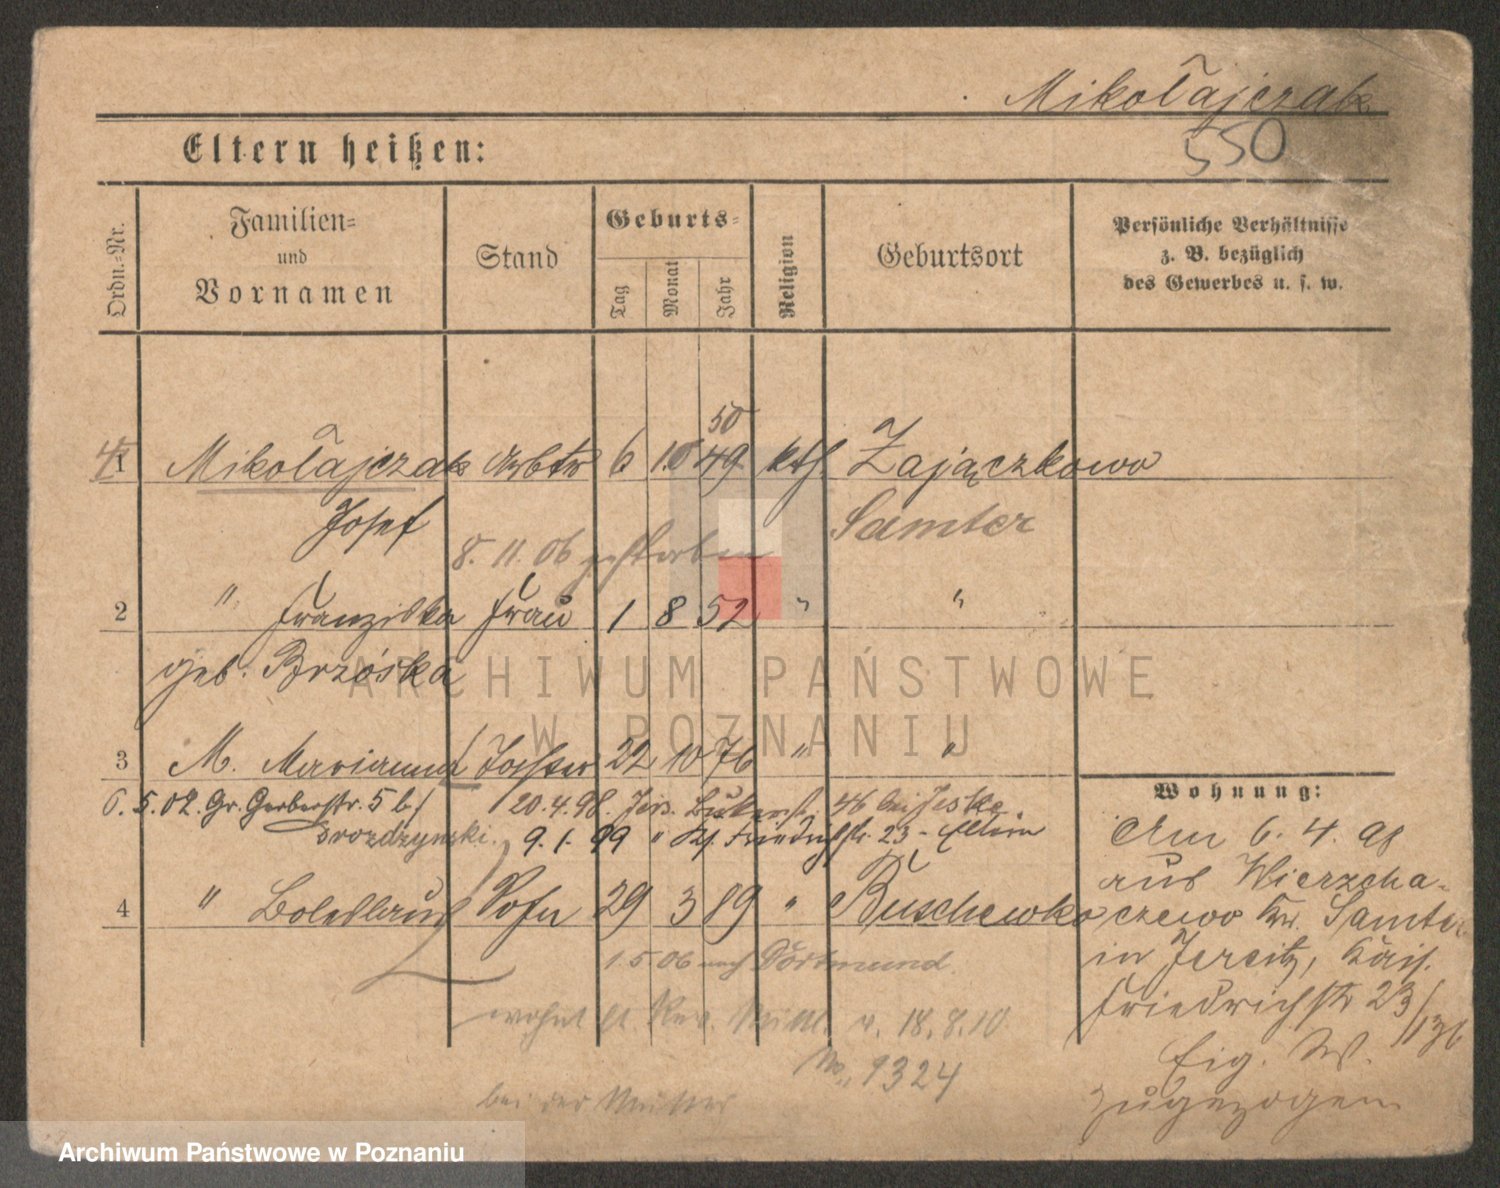 Mikołajczak
550
Eltern heißen:
Ordn.-Nr.
Familien- und Vornamen
Stand
Geburts-
Tag
Monat
Jahr
Religion
Geburtsort
Persönliche Verhältnisse
z. B. bezüglich
des Gewerbes u. s. w.
50
1 Mikołajczak Arbtr 6 10 49 kth. Zajączkowo
Josef Samter
8. 11. 06 gestorben
2 " Franziska Frau 1 8 52 " "
geb. Brzóska
ARCHIWUM PAŃSTWOWE
W POZNANIU
3 M. Marianna Tochter 22 10 76 " "
6.5.02. Gr. Gerberstr. 5 b/ 20.4.98. Jers. 46 bei Jeske
Drozdzynski. 9. 1. 99 " Friedrichstr. 23 - Eltern
4 " Boleslaus Sohn 29 3 89 " Buschewko
1 5 06 nach Dortmund
wohnt v. 18.8.10
No. 9324
bei der Mutter
Wohnung:
Am 6. 4. 98
aus Wierzcha-
czewo Kr. Samter
in Jersitz, Kais.
Friedrichstr 23/
Eig. W.
zugezogen
Archiwum Państwowe w Poznaniu